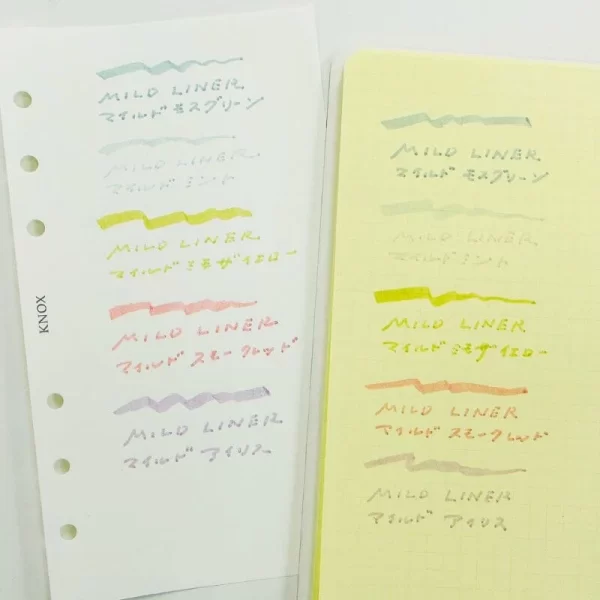 MILD LINER
マイルド モスグリーン
MILD LINER
マイルド ミント
MILD LINER
マイルド ミモザイエロー
MILD LINER
マイルド スモークレッド
MILD LINER
マイルド アイリス
KNOX
MILD LINER
マイルド モスグリーン
MILD LINER
マイルド ミント
MILD LINER
マイルド ミモザイエロー
MILD LINER
マイルド スモークレッド
MILD LINER
マイルド アイリス